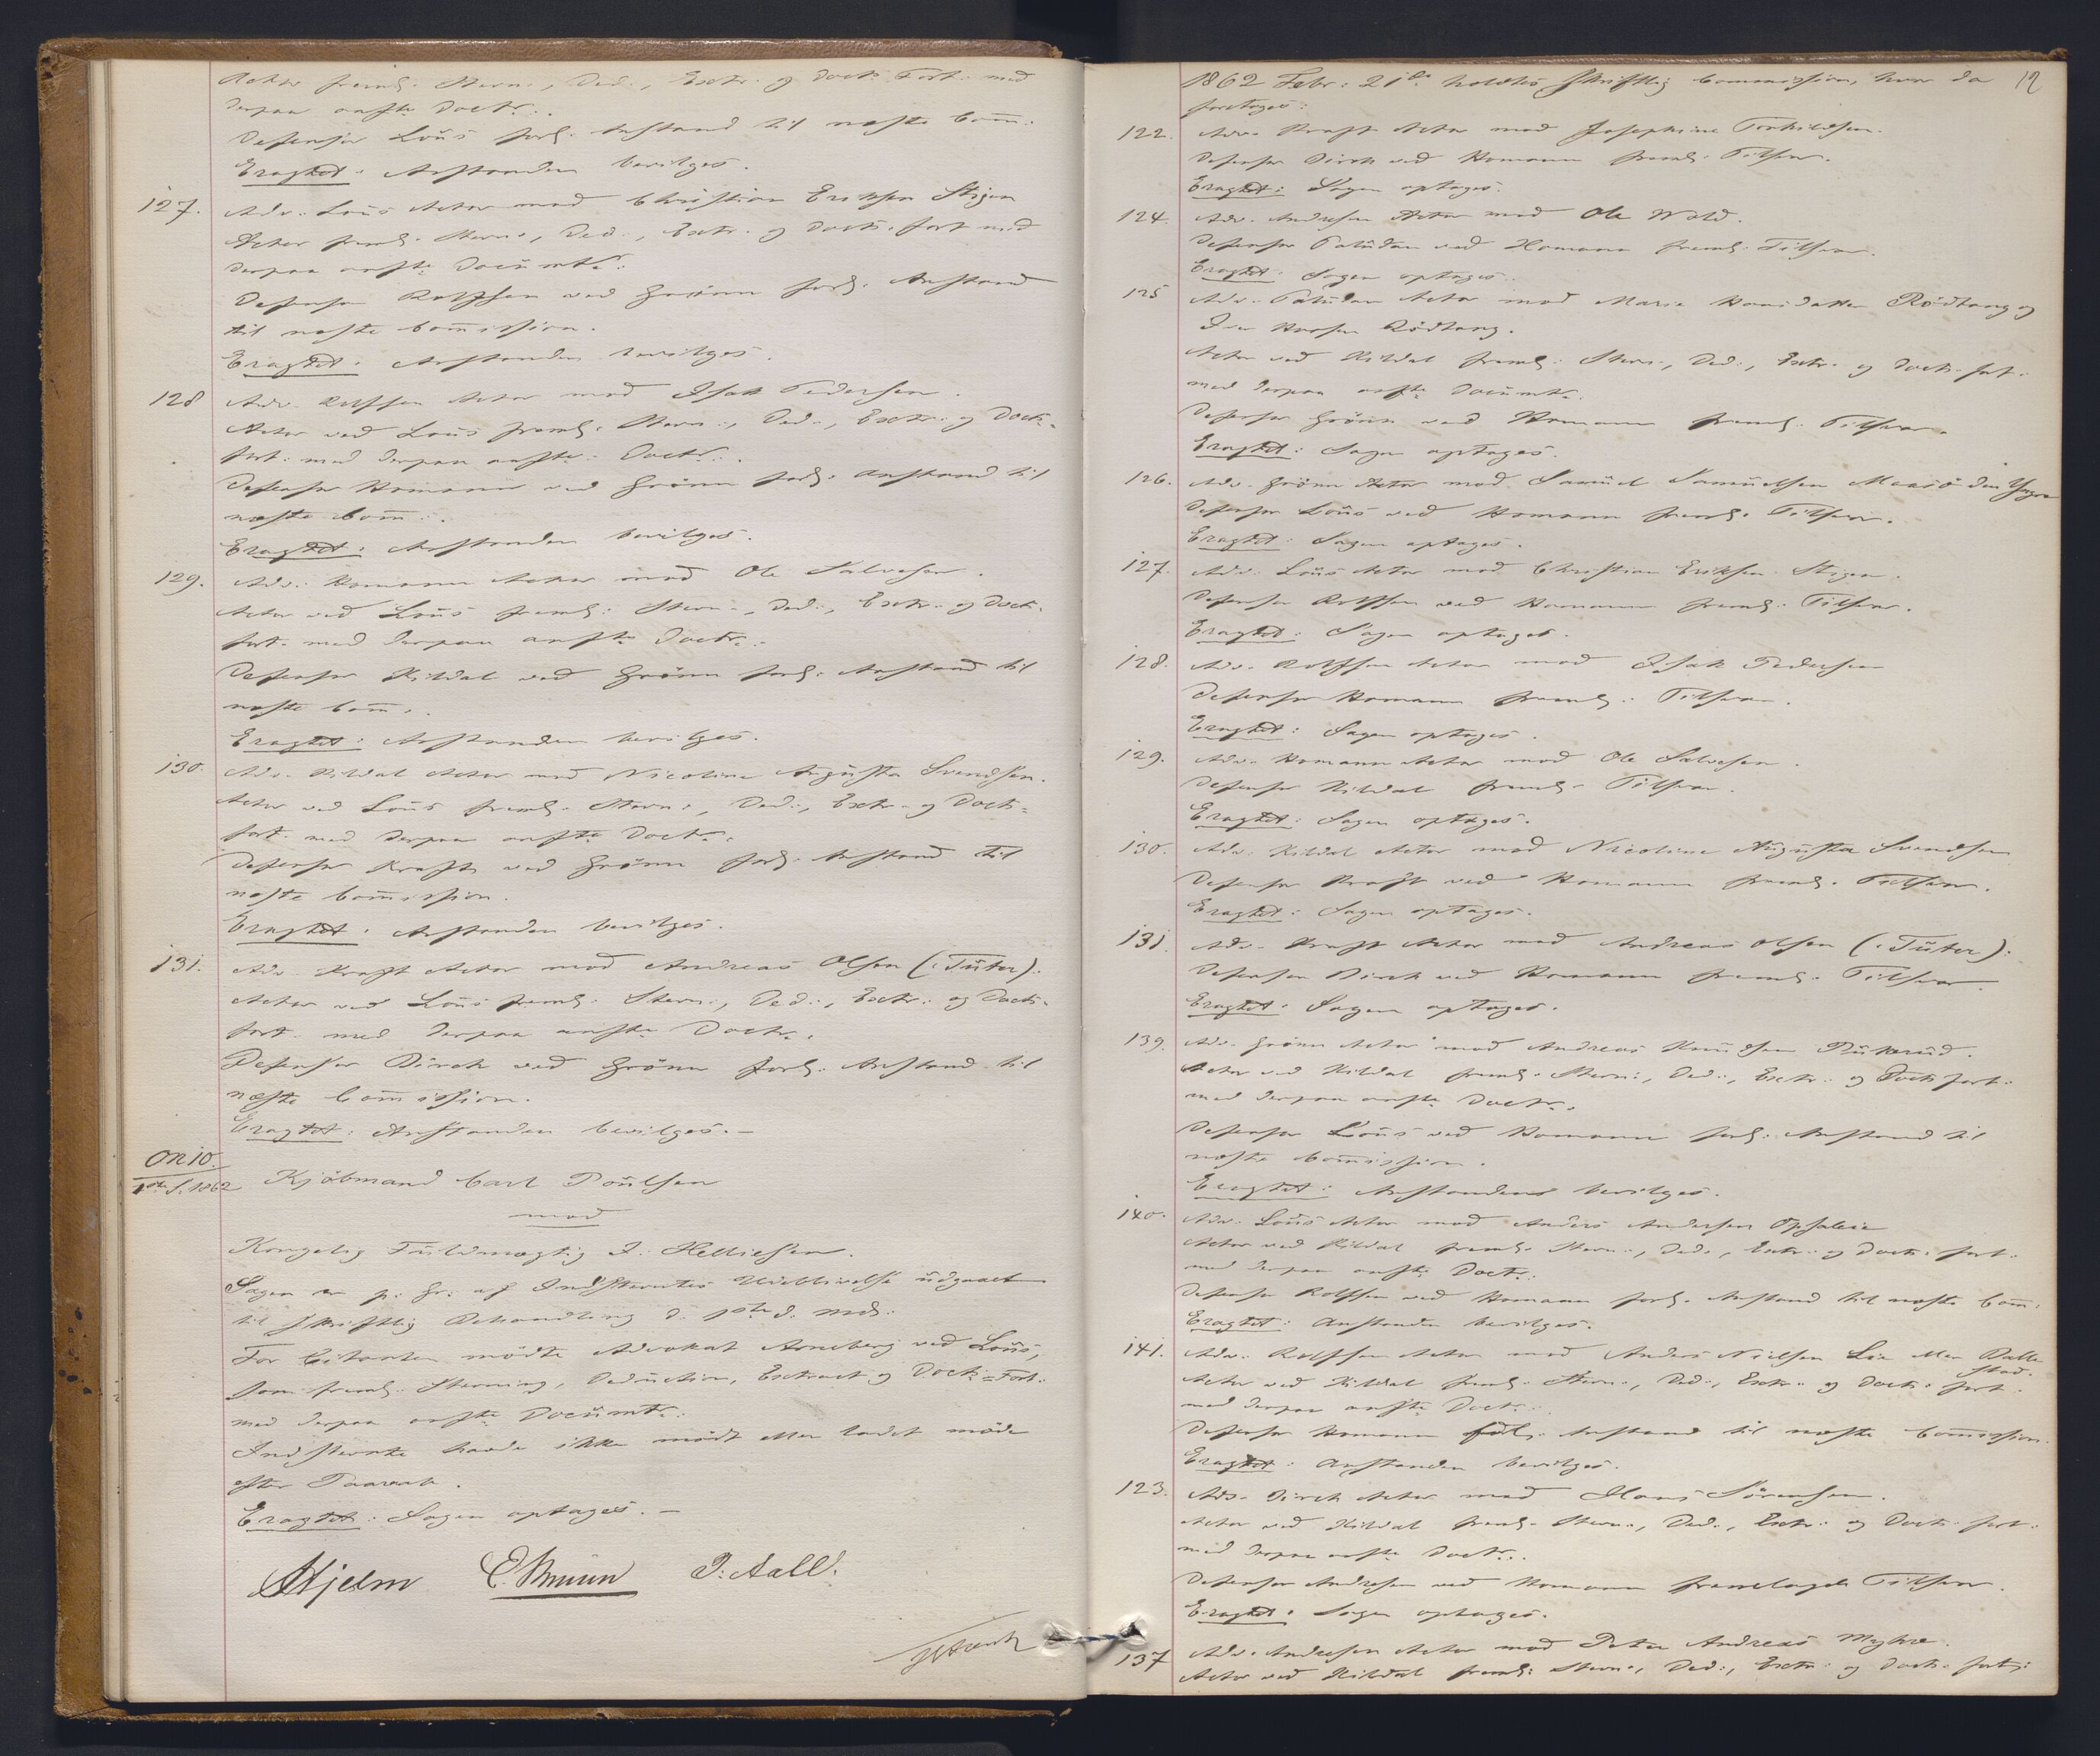 Actor freml: Stevn:, Ded:, Extr: og Doct: Fort: med
derpaa anfte Doctr:.
Defensor Loüs forl: Anstand til næste Comm:
Eragtet: Anstanden bevilges.
127. Adv: Loüs Actor mod Christian Eriksen Stigen
Actor freml: Stevn:, Ded:, Extr: og Doct: fort med
derpaa anfte Documtr:
Defensor Rolfsen ved Grönn forl: Anstand
til næste Commission.
Eragtet: Anstanden bevilges.
128 Adv: Rolfsen Actor mod Isak Pedersen.
Actor ved Loüs freml: Stevn:, Ded:, Extr: og Doct:
fort: med derpaa anfte: Doctr:.
Defensor Homann ved Grönn forl: Anstand til
næste Comm:.
Eragtet: Anstanden bevilges.
129. Adv: Homann Actor mod Ole Salvesen.
Actor ved Loüs freml: Stevn:, Ded:, Extr: og Doct:
fort: med derpaa anfte Doctr:.
Defensor Kildal ved Grönn forl: Anstand til
næste Comm:.
Eragtet: Anstanden bevilges.
130. Adv: Kildal Actor mod Nicoline Augusta Svendsen.
Actor ved Loüs freml: Stevn:, Ded:, Extr: og Doct:
fort: med derpaa anfte Doctr:.
Defensor Kraft ved Grönn forl: Anstand til
næste Commission.
Eragtet: Anstanden bevilges.
131. Adv: Kraft Actor mod Andreas Olsen (:Tüter):
Actor ved Loüs freml: Stevn:, Ded:, Extr: og Doct:
fort: med derpaa anfte Doctr:.
Defensor Dirck ved Grönn forl: Anstand til
næste Commission.
Eragtet: Anstanden bevilges.–
On 10.
1ste S. 1862 Kjöbmand Carl Poülsen
mod
Kongelig Fuldmægtig J: Helliesen.
Sagen er p: Gr: af Indstevntes Udeblivelse udgaaet
til skriftlig Behandling d. 1ste d. Mds:
For Citanten mödte Advokat Arneberg ved Loüs,
som freml: Stevning, Deduction, Extract og Doct:=Fort:
med derpaa anfte Documtr:
Indstevnte havde ikke mödt eller ladet möde
efter Paaraab.
Eragtet: Sagen optages. –
Hjelm C. Bruun J: Aall.
1862 Febr: 21de holdtes skriftlig Commission, hvor da 12
foretoges:
122. Adv: Kraft Actor mod Josephine Torkildsen.
Defensor Dirck ved Homann freml: Tilsvar.
Eragtet: Sagen optages.
124. Adv: Andresen Actor mod Ole Wold.
Defensor Paludan ved Homann freml: Tilsvar.
Eragtet: Sagen optages.
125 Adv: Paludan Actor mod Marie Hansdatter Rödtang og
Iver Hansen Rödtang.
Actor ved Kildal freml: Stevn:, Ded:, Extr: og Doct: fort:
med derpaa anfte Documtr:
Defensor Grönn ved Homann freml: Tilsvar.
Eragtet: Sagen optages.
126. Adv: Grönn Actor mod Samüel Samüelsen Maasö den Yngre
Defensor Loüs ved Homann freml: Tilsvar.
Eragtet: Sagen optages.
127. Adv: Loüs Actor mod Christian Eriksen Stigen.
Defensor Rolfsen ved Homann freml: Tilsvar.
Eragtet: Sagen optages.
128. Adv: Rolfsen Actor mod Isak Pedersen
Defensor Homann freml: Tilsvar.
Eragtet: Sagen optages.
129. Adv: Homann Actor mod Ole Salvesen.
Defensor Kildal freml: Tilsvar.
Eragtet: Sagen optages.
130. Adv: Kildal Actor mod Nicoline Augusta Svendsen
Defensor Kraft ved Homann freml: Tilsvar.
Eragtet: Sagen optages.
131. Adv: Kraft Actor mod Andreas Olsen (:Tüter):
Defensor Dirck ved Homann freml: Tilsvar.
Eragtet: Sagen optages.
139. Adv: Grönn Actor mod Andreas Knudsen
Actor ved Kildal freml: Stevn:, Ded:, Extr: og Doct: fort:
med derpaa anfte Doctr:.
Defensor Loüs ved Homann forl: Anstand til
næste Commission.
Eragtet: Anstanden bevilges.
140. Adv: Loüs Actor mod Anders Andersen Opsaleie
Actor ved Kildal freml: Stevn:, Ded:, Extr: og Doct: fort:
med derpaa anfte Doctr:.
Defensor Rolfsen ved Homann forl: Anstand til næste Comm:
Eragtet: Anstanden bevilges.
141. Adv: Rolfsen Actor mod Anders Nielsen Lie eller Dalle
stad.
Actor ved Kildal freml: Stevn:, Ded:, Extr: og Doct: fort:
med derpaa anfte Doctr:.
Defensor Homann forl: Anstand til næste Commission.
Eragtet: Anstanden bevilges.
123. Adv: Dirck Actor mod Hans Sörensen.
Actor ved Kildal freml: Stevn:, Ded:, Extr: og Doct: fort:
med derpaa anfte Doctr:.
Defensor Andresen ved Homann fremlagde Tilsvar.
Eragtet: Sagen optages.
137 Adv: Andresen Actor mod Peter Andreas Myhre.
Actor ved Kildal freml: Stevn:, Ded:, Extr: og Doct: fort: